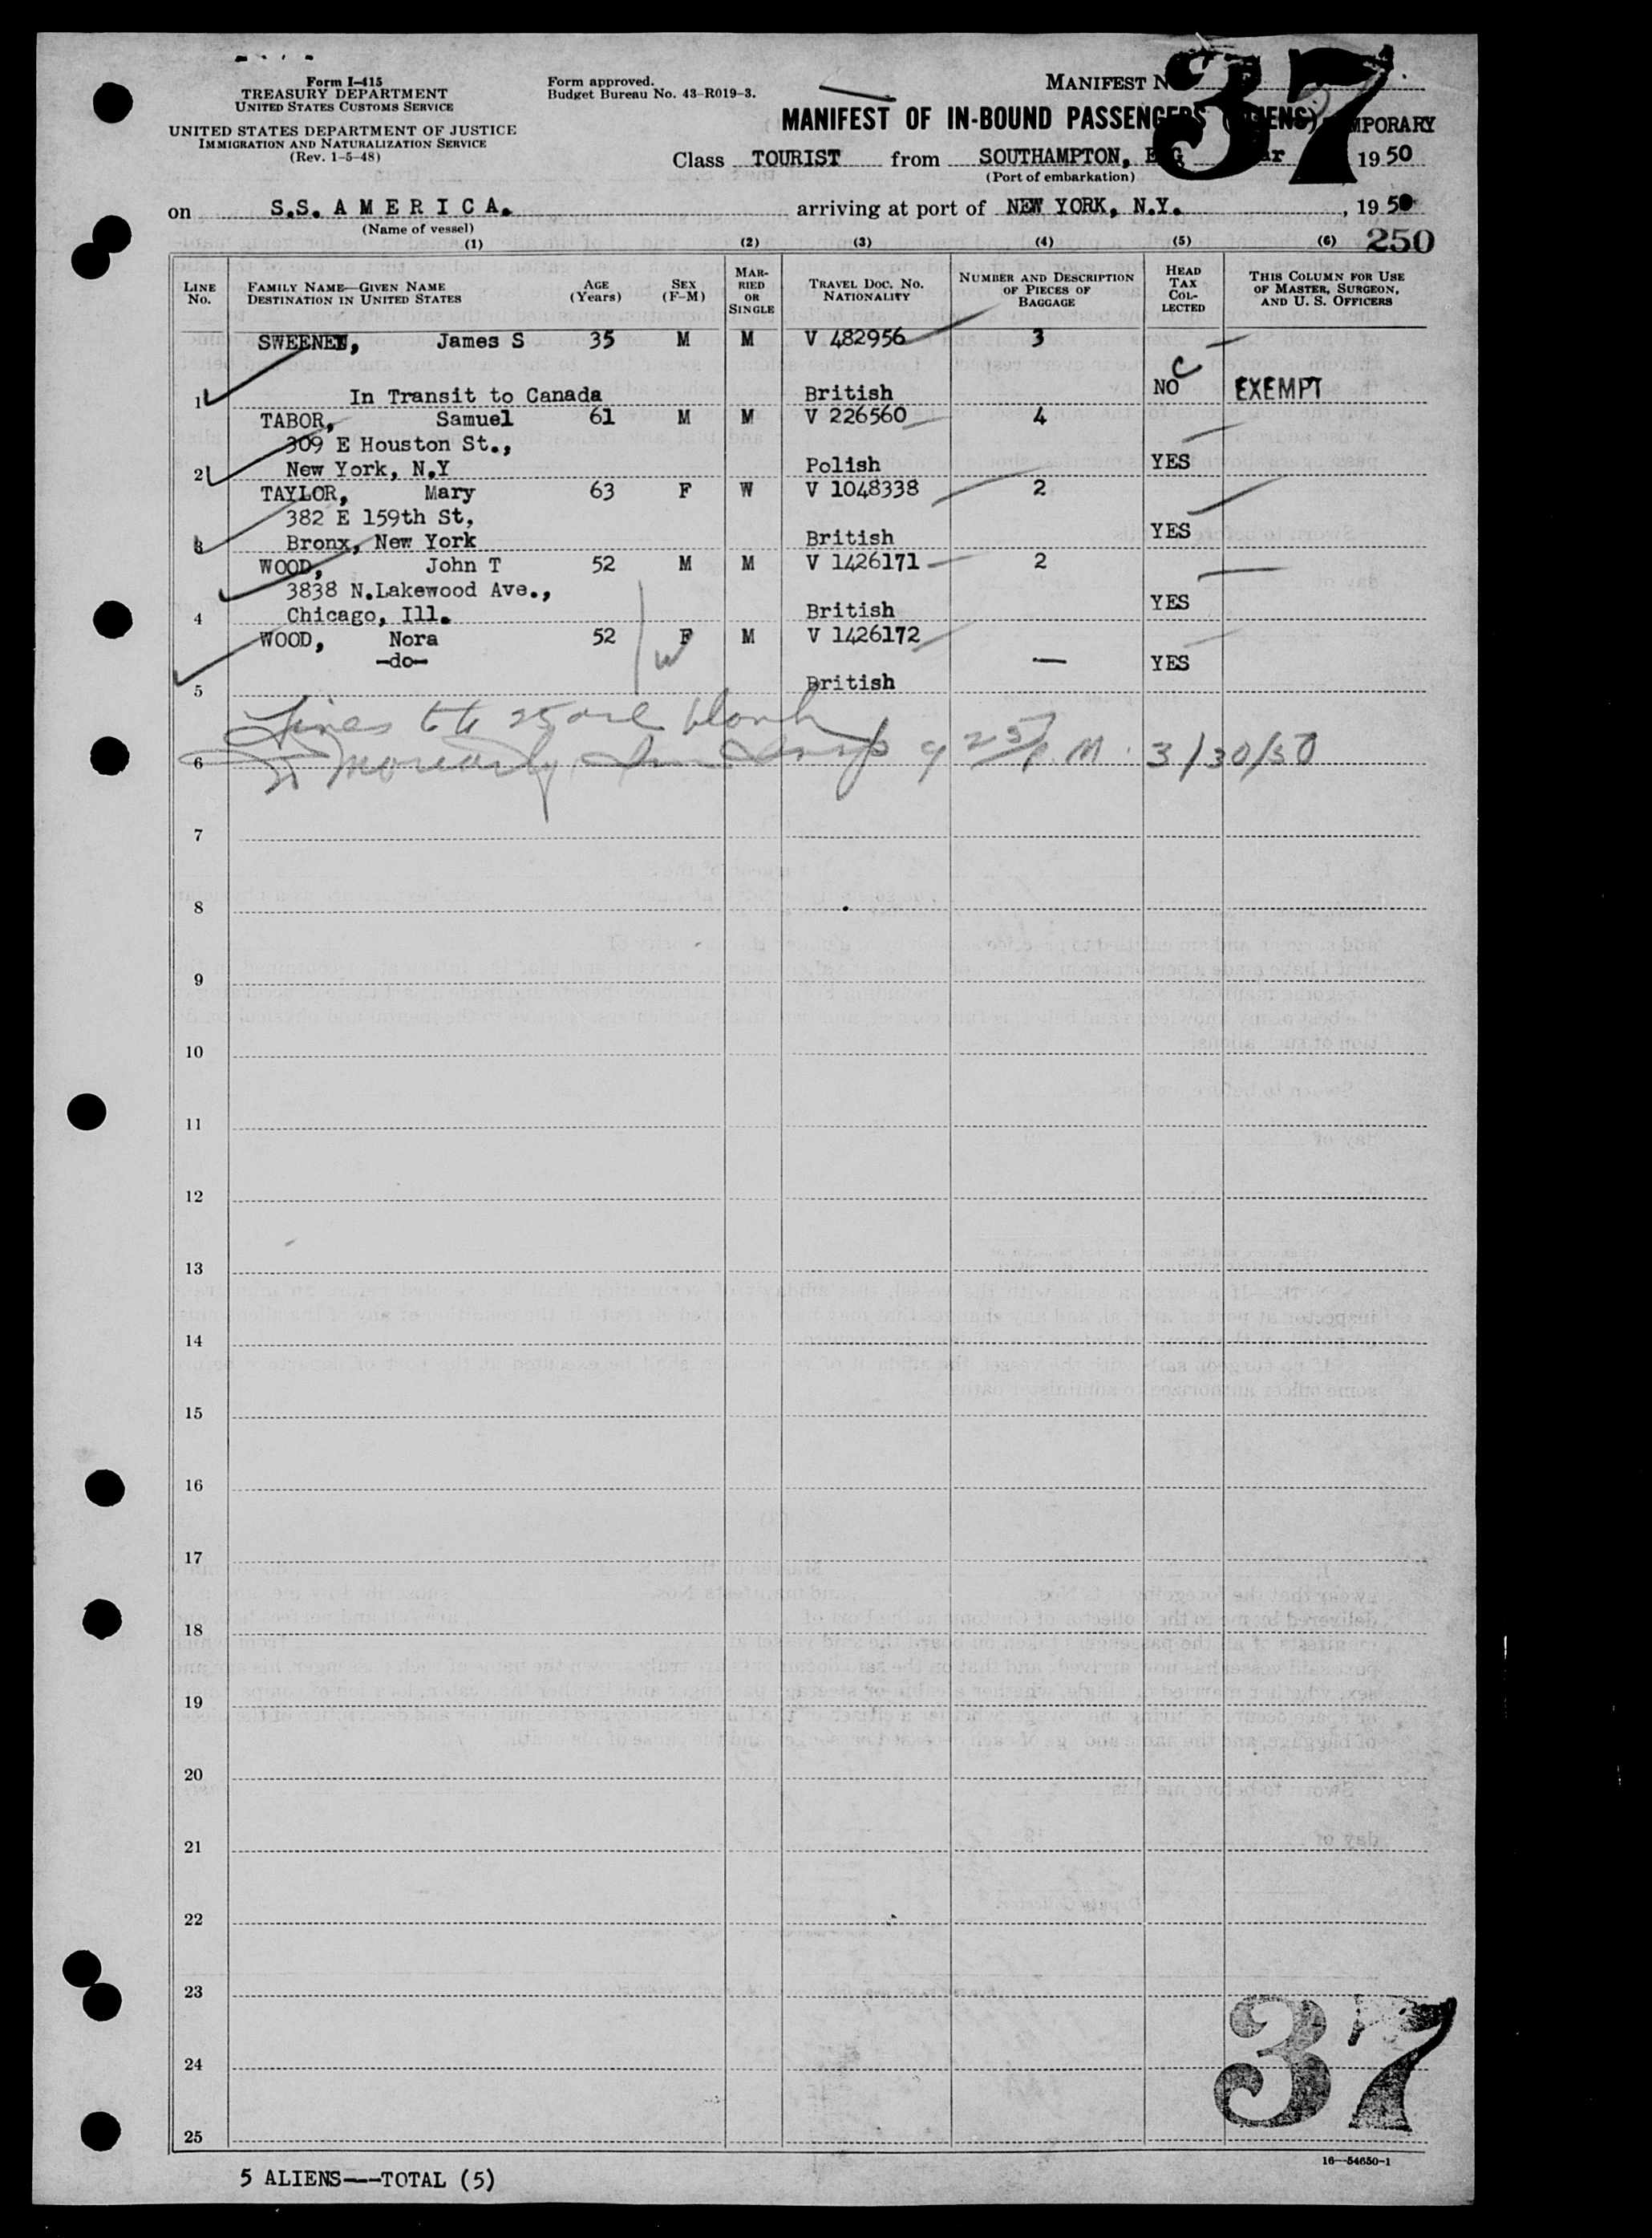 Form I-415
TREASURY DEPARTMENT
UNITED STATES CUSTOMS SERVICE
UNITED STATES DEPARTMENT OF JUSTICE
IMMIGRATION AND NATURALIZATION SERVICE
(Rev. 1-5-48)
Form approved.
Budget Bureau No. 43-R019-3.
MANIFEST N
37
MANIFEST OF IN-BOUND PASSENGERS (ALIENS)
MPORARY
Class TOURIST from SOUTHAMPTON, ENG ar 1950
(Port of embarkation)
on S.S. A M E R I C A. arriving at port of NEW YORK, N.Y. , 1950
(Name of vessel)
250
(1) (2) (3) (4) (5) (6)
LINE No. FAMILY NAME—GIVEN NAME DESTINATION IN UNITED STATES AGE (Years) SEX (F-M) MARRIED OR SINGLE TRAVEL DOC. No. NATIONALITY NUMBER AND DESCRIPTION OF PIECES OF BAGGAGE HEAD TAX COLLECTED THIS COLUMN FOR USE OF MASTER, SURGEON, AND U. S. OFFICERS
SWEENEY, James S 35 M M V 482956 3
C
1 In Transit to Canada British NO EXEMPT
TABOR, Samuel 61 M M V 226560 4
309 E Houston St.,
2 New York, N.Y Polish YES
TAYLOR, Mary 63 F W V 1048338 2
382 E 159th St,
3 Bronx, New York British YES
WOOD, John T 52 M M V 1426171 2
3838 N.Lakewood Ave.,
4 Chicago, Ill. British YES
WOOD, Nora 52 F M V 1426172
-do- W — YES
5 British
Lines 6 to 25 are blank
6 Moriarty Imm Insp 9 25 P.M. 3/30/50
7
8
9
10
11
12
13
14
15
16
17
18
19
20
21
22
23
24
25
37
16—54650-1
5 ALIENS---TOTAL (5)